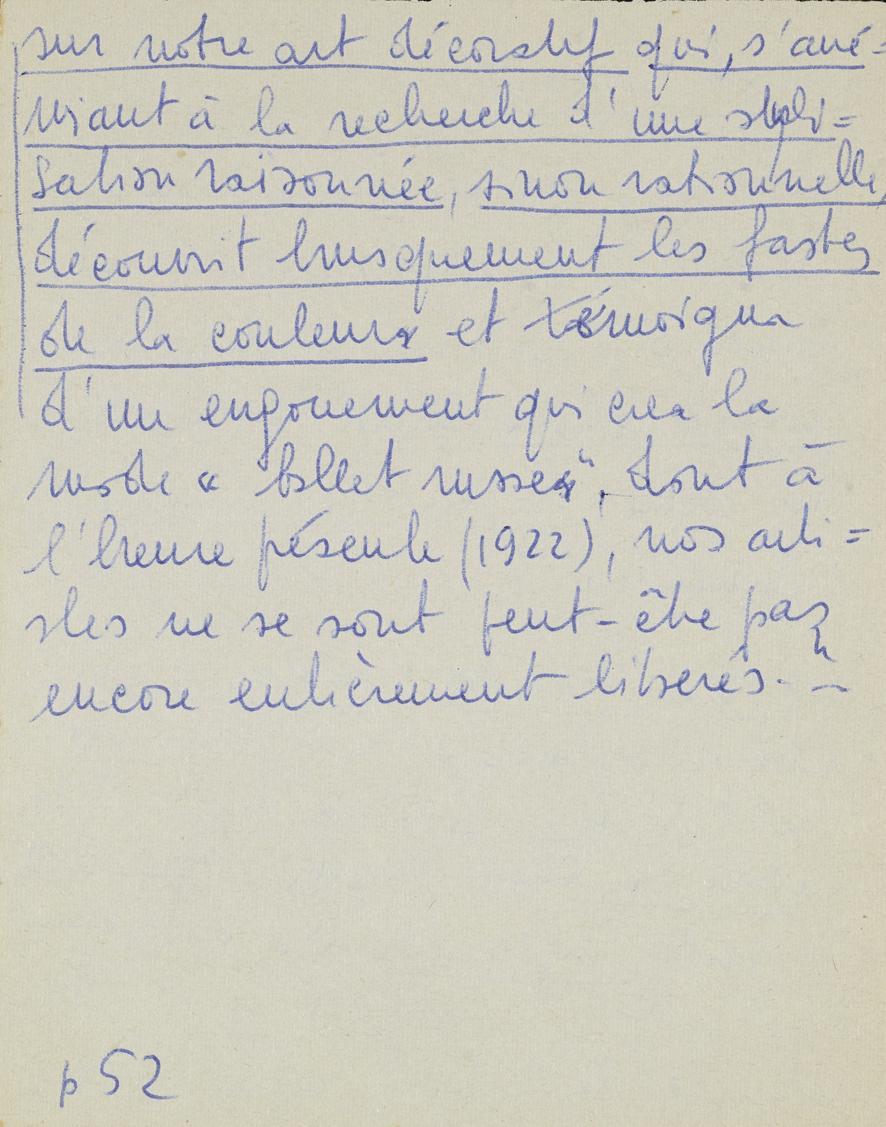 sur notre art décoratif qui, s'ané=
miant à la recherche d'une styli=
sation raisonnée, sinon rationnelle,
découvrit brusquement les fastes
de la couleur et témoigna
d'un engouement qui créa la
mode « ballet russe", dont à
l'heure présente (1922), nos arti=
stes ne se sont peut-être pas
encore entièrement libérés. –
p 52